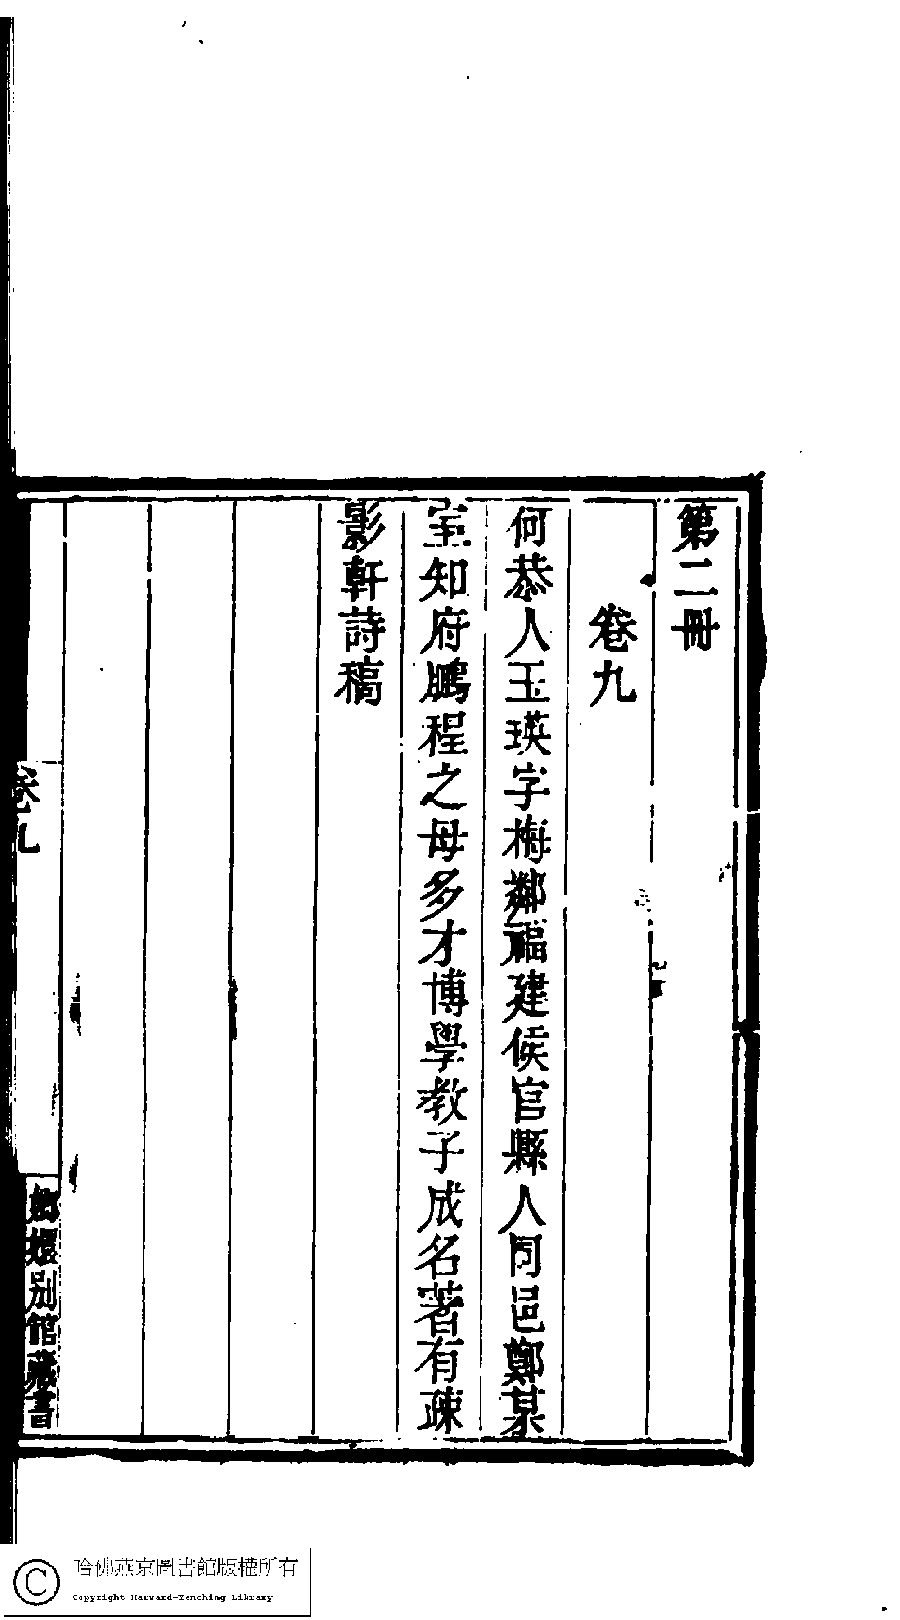 第二冊
卷九
何恭人玉瑛字梅鄰福建侯官縣人同邑鄭某
室知府鵬程之母多才博學教子成名著有疎
影軒詩稿
卷九
嫏嬛別館藏書
哈佛燕京圖書館版權所有
Copyright Harvard-Yenching Library